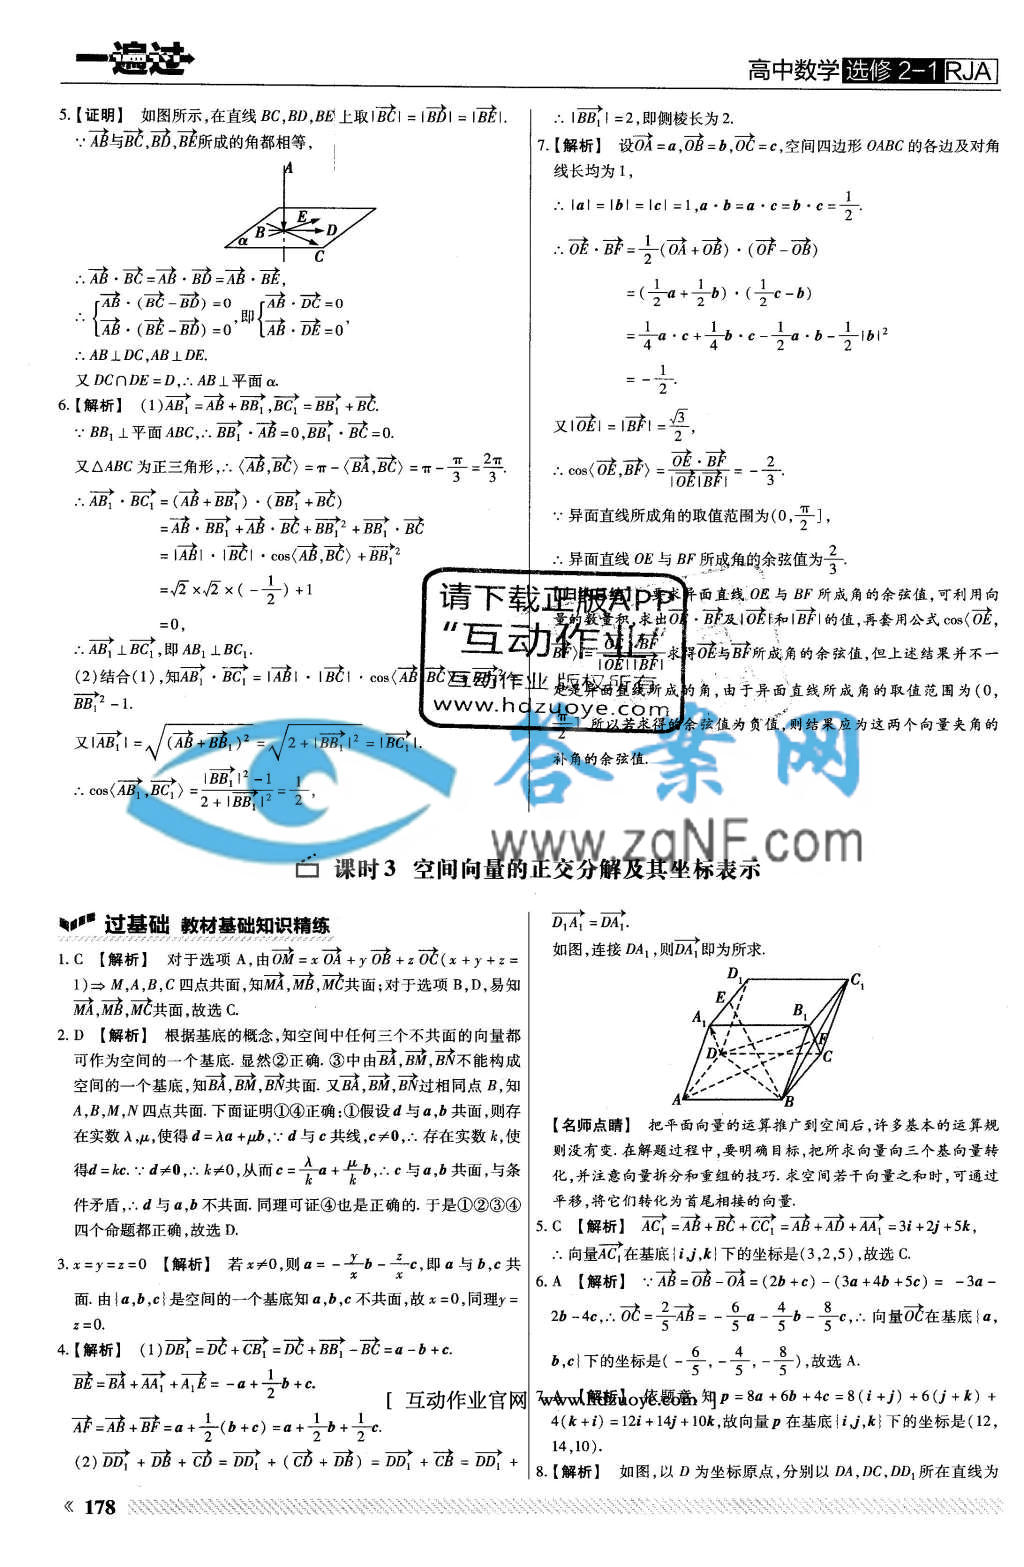 一遍过
高中数学 选修2-1 RJA
5.【证明】 如图所示,在直线 BC,BD,BE 上取|BC→| = |BD→| = |BE→|.
∵ AB→与BC→,BD→,BE→所成的角都相等,
A
E
B
D
α
C
∴ AB→ · BC→ = AB→ · BD→ = AB→ · BE→,
∴ {AB→ · (BC→ - BD→) = 0, 即 {AB→ · DC→ = 0,
AB→ · (BE→ - BD→) = 0 AB→ · DE→ = 0
∴ AB⊥DC,AB⊥DE.
又 DC∩DE = D,∴ AB⊥平面 α.
6.【解析】 (1)AB₁→ = AB→ + BB₁→,BC₁→ = BB₁→ + BC→.
∵ BB₁⊥平面 ABC,∴ BB₁→ · AB→ = 0,BB₁→ · BC→ = 0.
又△ABC 为正三角形,∴ ⟨AB→,BC→⟩ = π - ⟨BA→,BC→⟩ = π - π/3 = 2π/3.
∴ AB₁→ · BC₁→ = (AB→ + BB₁→) · (BB₁→ + BC→)
= AB→ · BB₁→ + AB→ · BC→ + BB₁→² + BB₁→ · BC→
= |AB→| · |BC→| · cos⟨AB→,BC→⟩ + BB₁→²
= √2 × √2 × (-1/2) + 1
= 0,
∴ AB₁→⊥BC₁→,即 AB₁⊥BC₁.
(2)结合(1),知AB₁→ · BC₁→ = |AB→| · |BC→| · cos⟨AB→,BC→⟩ +
BB₁→² - 1.
又|AB₁→| = √((AB→ + BB₁→)²) = √(2 + |BB₁→|²) = |BC₁→|.
∴ cos⟨AB₁→,BC₁→⟩ = (|BB₁→|² - 1)/(2 + |BB₁→|²) = 1/2,
∴ |BB₁→| = 2,即侧棱长为 2.
7.【解析】 设OA→ = a,OB→ = b,OC→ = c,空间四边形 OABC 的各边及对角
线长均为 1,
∴ |a| = |b| = |c| = 1,a · b = a · c = b · c = 1/2.
∴ OE→ · BF→ = 1/2(OA→ + OB→) · (OF→ - OB→)
= (1/2a + 1/2b) · (1/2c - b)
= 1/4a · c + 1/4b · c - 1/2a · b - 1/2|b|²
= -1/2.
又|OE→| = |BF→| = √3/2,
∴ cos⟨OE→,BF→⟩ = OE→ · BF→/(|OE→||BF→|) = -2/3.
∵ 异面直线所成角的取值范围为(0,π/2],
∴ 异面直线 OE 与 BF 所成角的余弦值为2/3.
【归纳总结】 要求异面直线 OE 与 BF 所成角的余弦值,可利用向
量的数量积,求出OE→ · BF→及|OE→|和|BF→|的值,再套用公式 cos⟨OE→,
BF→⟩ = OE→ · BF→/(|OE→||BF→|)求得OE→与BF→所成角的余弦值,但上述结果并不一
定是异面直线所成的角,由于异面直线所成角的取值范围为(0,
π/2],所以若求得的余弦值为负值,则结果应为这两个向量夹角的
补角的余弦值.
请下载正版APP
“互动作业”
互动作业 版权所有
www.hdzuoye.com
答案网
www.zqNF.com
课时3 空间向量的正交分解及其坐标表示
过基础 教材基础知识精练
1. C 【解析】 对于选项 A,由OM→ = xOA→ + yOB→ + zOC→(x + y + z =
1)⇒M,A,B,C 四点共面,知MA→,MB→,MC→共面;对于选项 B,D,易知
MA→,MB→,MC→共面,故选 C.
2. D 【解析】 根据基底的概念,知空间中任何三个不共面的向量都
可作为空间的一个基底. 显然②正确. ③中由BA→,BM→,BN→不能构成
空间的一个基底,知BA→,BM→,BN→共面. 又BA→,BM→,BN→过相同点 B,知
A,B,M,N 四点共面. 下面证明①④正确:①假设 d 与 a,b 共面,则存
在实数 λ,μ,使得 d = λa + μb,∵ d 与 c 共线,c≠0,∴ 存在实数 k,使
得d = kc. ∵ d≠0,∴ k≠0,从而 c = λ/k a + μ/k b,∴ c 与 a,b 共面,与条
件矛盾,∴ d 与 a,b 不共面. 同理可证④也是正确的. 于是①②③④
四个命题都正确,故选 D.
3. x = y = z = 0 【解析】 若 x≠0,则 a = -y/x b - z/x c,即 a 与 b,c 共
面. 由{a,b,c}是空间的一个基底知 a,b,c 不共面,故 x = 0,同理y =
z = 0.
4.【解析】 (1)DB₁→ = DC→ + CB₁→ = DC→ + BB₁→ - BC→ = a - b + c.
BE→ = BA→ + AA₁→ + A₁E→ = -a + 1/2b + c.
AF→ = AB→ + BF→ = a + 1/2(b + c) = a + 1/2b + 1/2c.
(2)DD₁→ + DB→ + CD→ = DD₁→ + (CD→ + DB→) = DD₁→ + CB→ = DD₁→ +
D₁A₁→ = DA₁→.
如图,连接 DA₁,则DA₁→即为所求.
D₁
C₁
E
A₁
B₁
F
D
C
A
B
【名师点睛】 把平面向量的运算推广到空间后,许多基本的运算规
则没有变. 在解题过程中,要明确目标,把所求向量向三个基向量转
化,并注意向量拆分和重组的技巧. 求空间若干向量之和时,可通过
平移,将它们转化为首尾相接的向量.
5. C 【解析】 AC₁→ = AB→ + BC→ + CC₁→ = AB→ + AD→ + AA₁→ = 3i + 2j + 5k,
∴ 向量AC₁→在基底{i,j,k}下的坐标是(3,2,5),故选 C.
6. A 【解析】 ∵ AB→ = OB→ - OA→ = (2b + c) - (3a + 4b + 5c) = -3a -
2b - 4c,∴ OC→ = 2/5AB→ = -6/5a - 4/5b - 8/5c,∴ 向量OC→在基底{a,
b,c}下的坐标是(-6/5,-4/5,-8/5),故选 A.
7. A 【解析】 依题意,知 p = 8a + 6b + 4c = 8(i + j) + 6(j + k) +
4(k + i) = 12i + 14j + 10k,故向量 p 在基底{i,j,k}下的坐标是(12,
14,10).
8.【解析】 如图,以 D 为坐标原点,分别以 DA,DC,DD₁ 所在直线为
[ 互动作业官网 www.hdzuoye.com ]
« 178